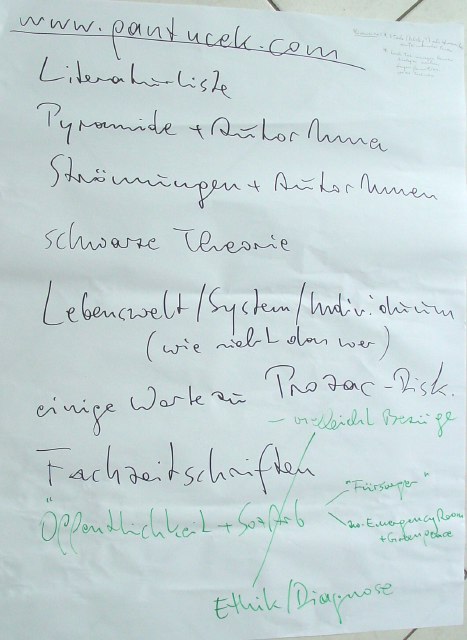 www.pantucek.com
Literaturliste
Pyramide + AutorInnen
Strömungen + AutorInnen
schwarze Theorie
Lebenswelt/System/Individuum
(wie sieht das wer)
einige Worte zu Prozac-Disk.
- vielleicht Bezüge
Fachzeitschriften
"Öffentlichkeit + SozArb
"Fürsorger"
Emergency Room
+ Greenpeace
Ethik/Diagnose